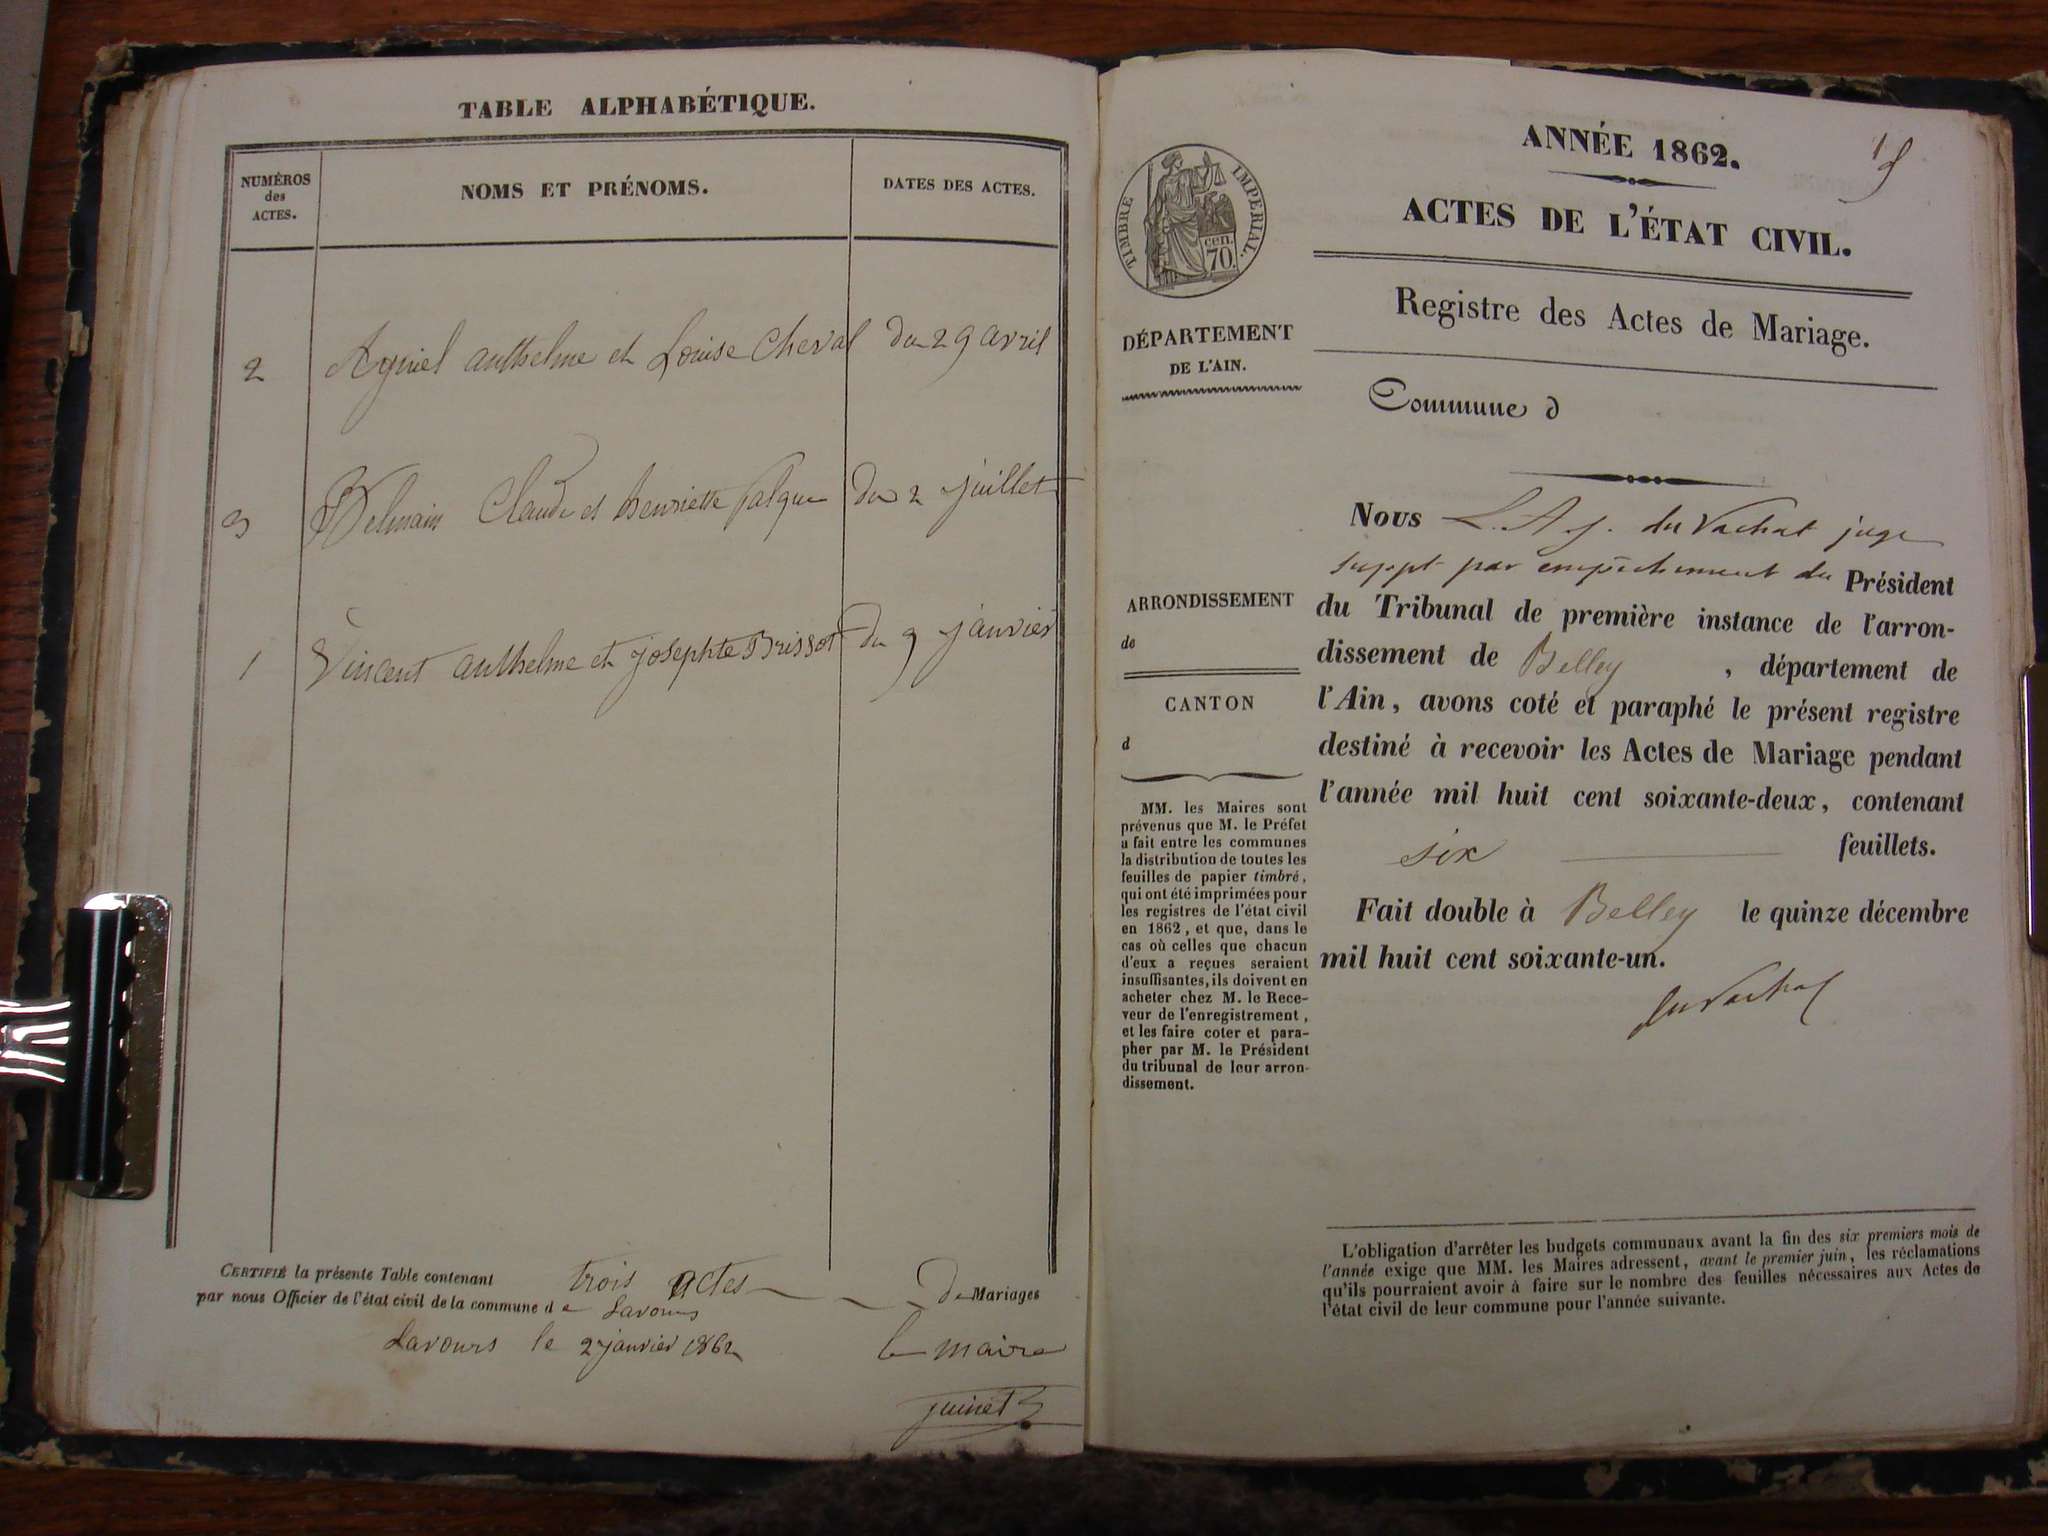 TABLE ALPHABÉTIQUE.
NUMÉROS
des
ACTES.
NOMS ET PRÉNOMS.
DATES DES ACTES.
2 anthelme et Louise Cheval du 29 avril
3 Claude et henriette du 2 juillet
1 Vincent anthelme et josephte Brissot du 9 janvier
CERTIFIÉ la présente Table contenant trois actes De Mariages
par nous Officier de l'état civil de la commune d e Lavours
Lavours le 2 janvier 1862
le maire
juinet
ANNÉE 1862.
ACTES DE L'ÉTAT CIVIL.
Registre des Actes de Mariage.
TIMBRE IMPERIAL.
cen.
70.
DÉPARTEMENT
DE L'AIN.
Commune d
ARRONDISSEMENT
de
CANTON
d
MM. les Maires sont
prévenus que M. le Préfet
a fait entre les communes
la distribution de toutes les
feuilles de papier timbré,
qui ont été imprimées pour
les registres de l'état civil
en 1862, et que, dans le
cas où celles que chacun
d'eux a reçues seraient
insuffisantes, ils doivent en
acheter chez M. le Rece-
veur de l'enregistrement,
et les faire coter et para-
pher par M. le Président
du tribunal de leur arron-
dissement.
Nous L. A. J. du Vachat juge
suppt par empêchement du Président
du Tribunal de première instance de l'arron-
dissement de Belley , département de
l'Ain, avons coté et paraphé le présent registre
destiné à recevoir les Actes de Mariage pendant
l'année mil huit cent soixante-deux, contenant
six feuillets.
Fait double à Belley le quinze décembre
mil huit cent soixante-un.
du Vachat
L'obligation d'arrêter les budgets communaux avant la fin des six premiers mois de
l'année exige que MM. les Maires adressent, avant le premier juin, les réclamations
qu'ils pourraient avoir à faire sur le nombre des feuilles nécessaires aux Actes de
l'état civil de leur commune pour l'année suivante.